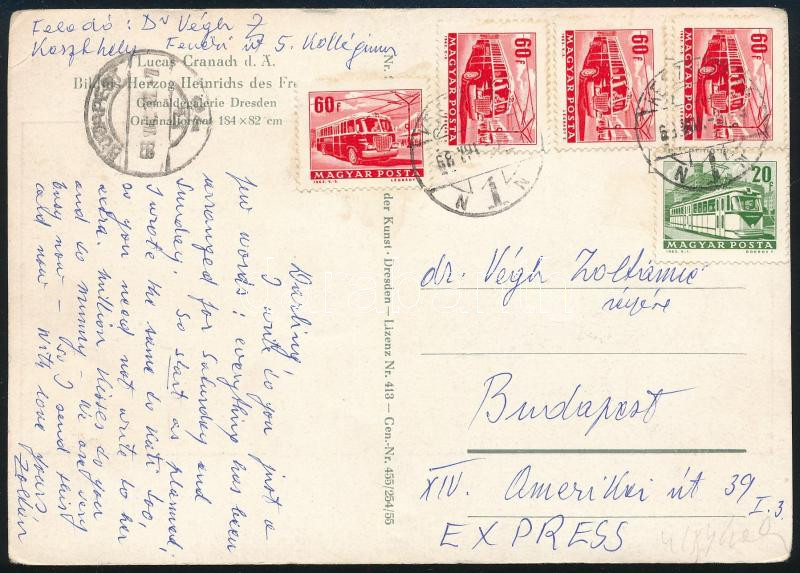 Feladó: Dr Végh Z
Keszthely Fenéki út 5. Kollégium
Lucas Cranach d. Ä.
Bildnis Herzog Heinrichs des Fr
Gemäldegalerie Dresden
Originalformat 184×82 cm
BUDAPEST
Darling!
I write to you just a
few words: everything has been
arranged for Saturday and
Sunday. So start as planned;
I wrote the same to Kati too,
so you need not write to her
extra. Million kisses to you
and to mummy - We are very
busy now - So I send this
and now with love yours
Zoltán
Nr.
der Kunst · Dresden — Lizenz Nr. 413 — Gen.-Nr. 455/254/55
60f
MAGYAR POSTA
1963. V. 2.
LÉGRÁDY
60f
MAGYAR POSTA
60f
MAGYAR POSTA
60f
MAGYAR POSTA
20f
MAGYAR POSTA
dr. Végh Zoltánné
részére
Budapest
XIV. Amerikai út 39
I. 3
EXPRESS